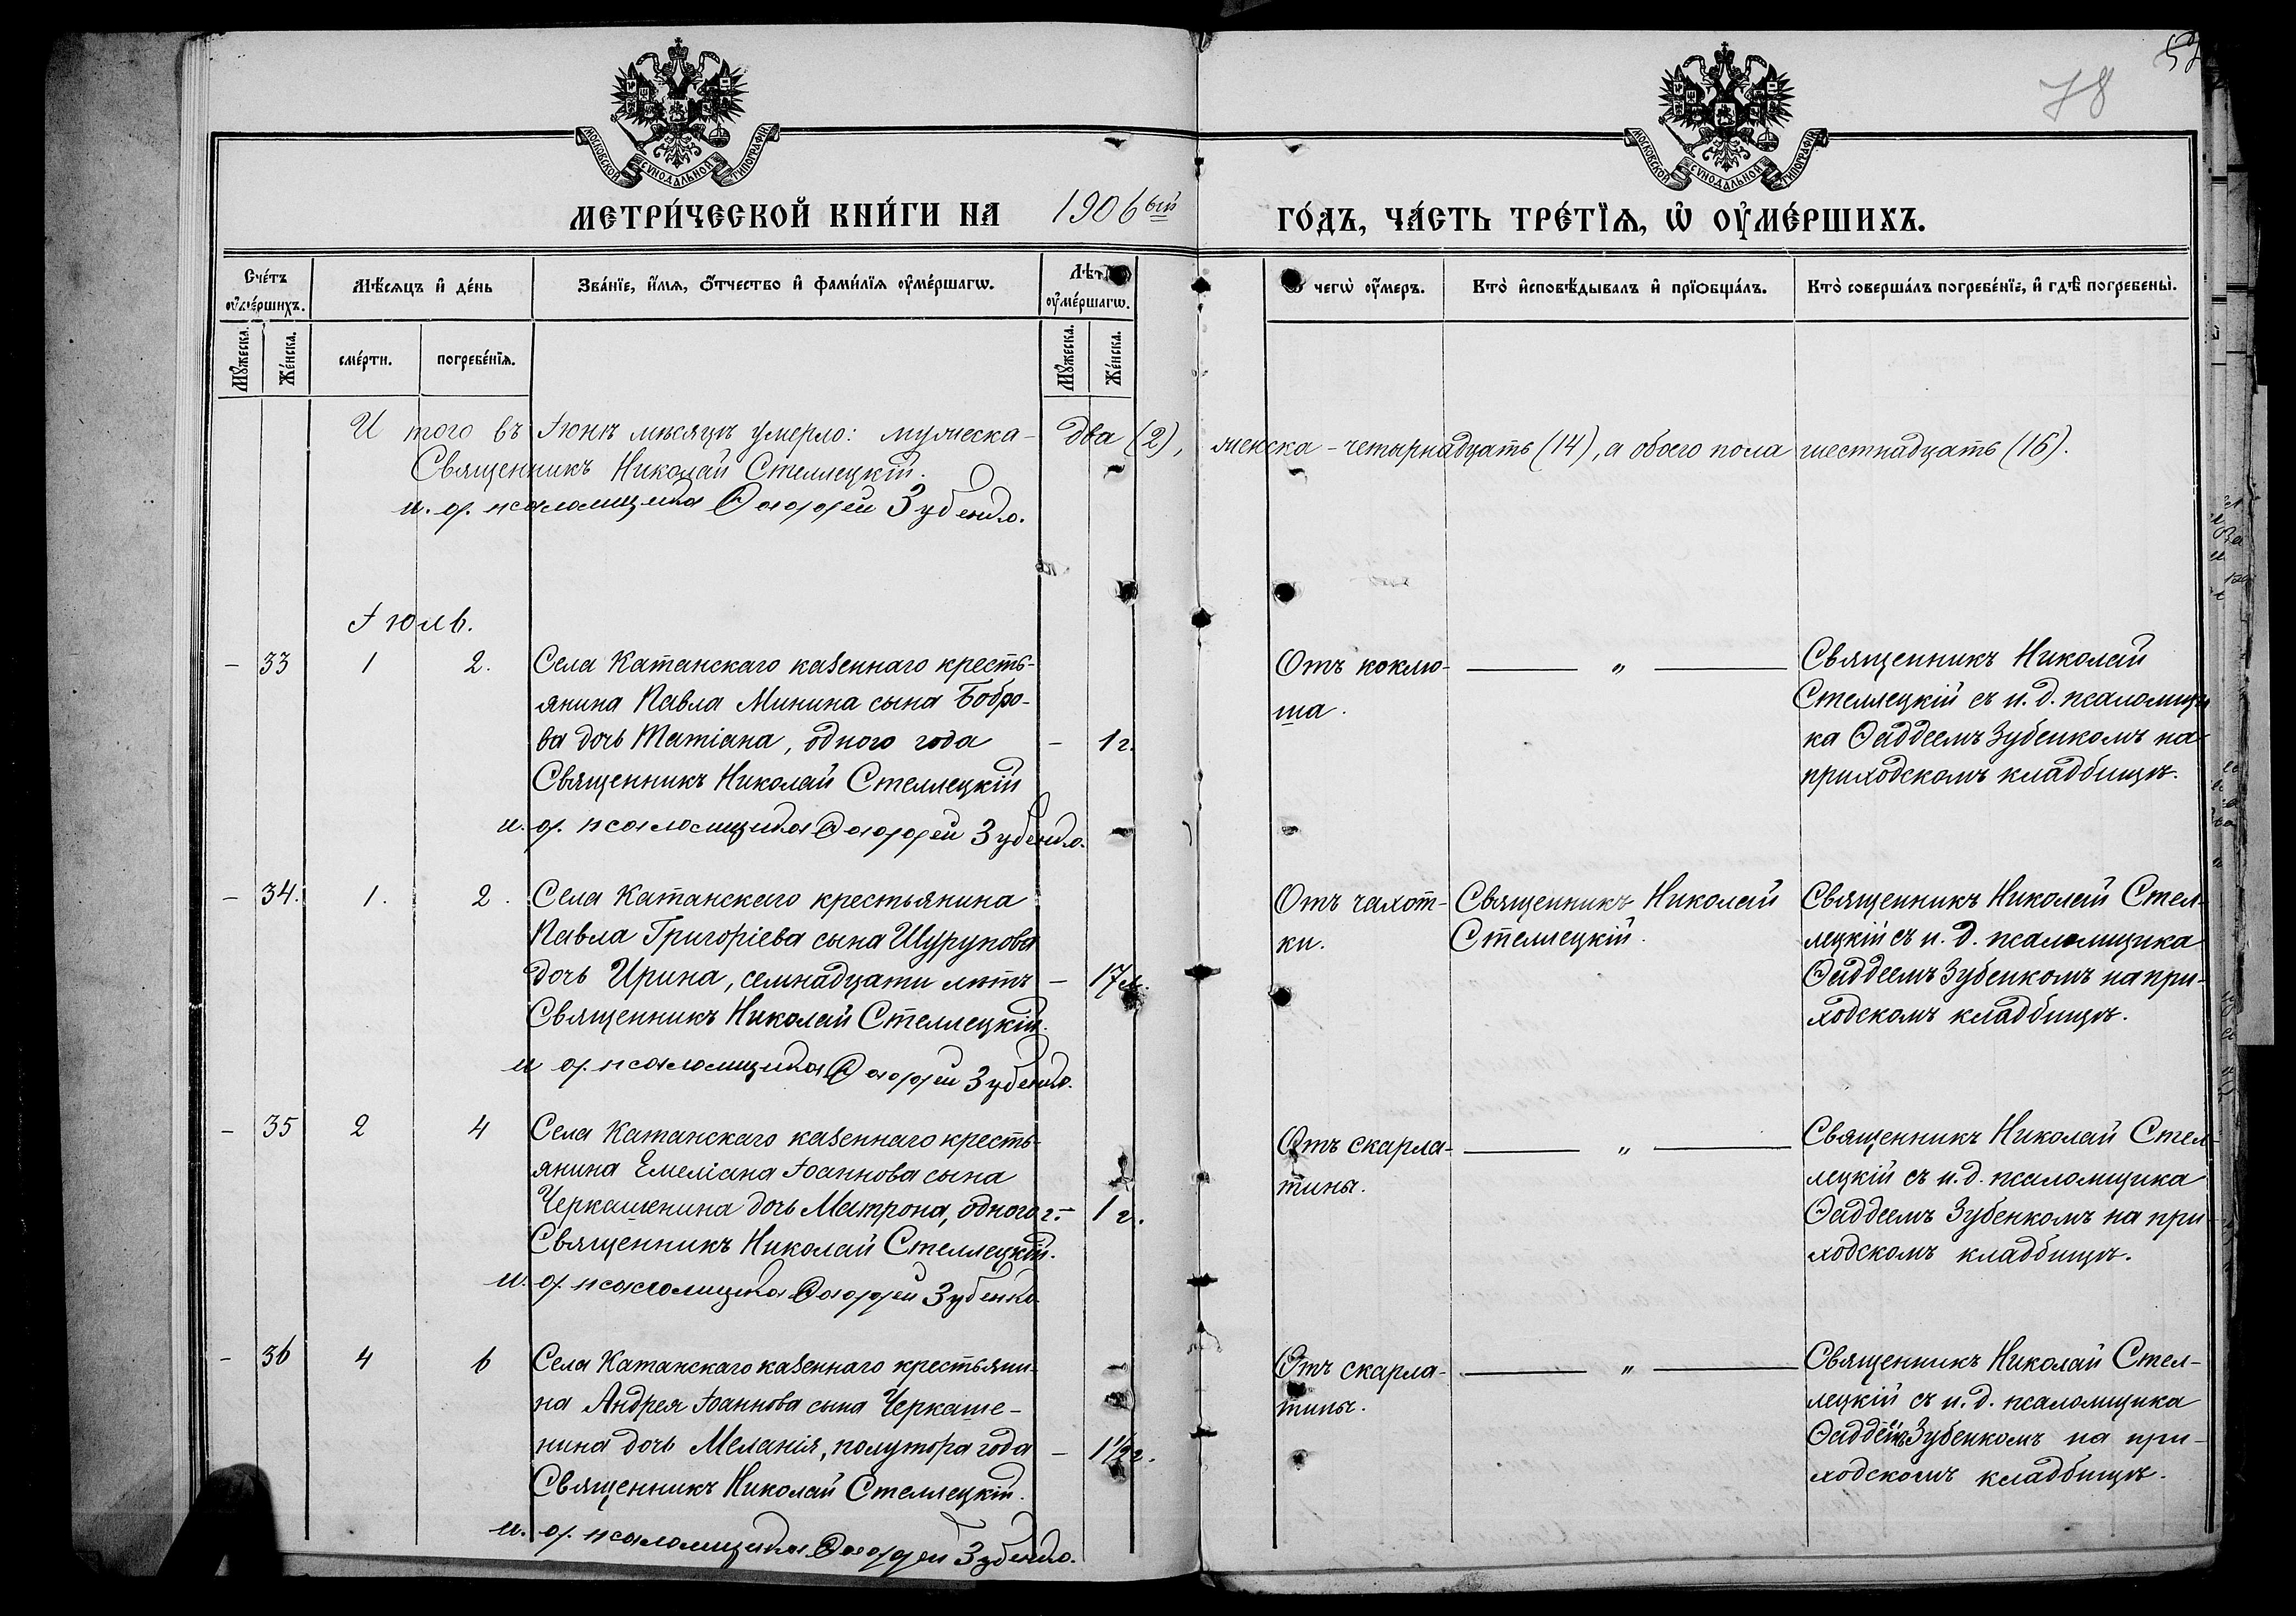 78
МОСКОВСКОЙ СѴНОДАЛЬНОЙ ТИПОГРАФІИ
МОСКОВСКОЙ СѴНОДАЛЬНОЙ ТИПОГРАФІИ
МЕТРИ́ЧЕСКОЙ КНИ́ГИ НА 1906ый ГО́ДЪ, ЧА́СТЬ ТРЕ́ТЇѦ, Ѡ҆ ОУ҆МЕ́РШИХЪ.
Сче́тъ оу҆ме́ршихъ.
Мѣ́сяцъ и҆ де́нь
Зва́нїе, и҆́мѧ, ѻ҆́тчество и҆ фами́лїѧ оу҆ме́ршагѡ.
Лѣ́та оу҆ме́ршагѡ.
чегѡ̀ оу҆́меръ.
Кто̀ и҆сповѣ́дывалъ и҆ прїѡбща́лъ.
Кто̀ соверша́лъ погребе́нїе, и҆ гдѣ̀ погребены̀.
Мꙋ́жеска. Же́нска.
сме́рти. погребе́нїѧ.
Мꙋ́жеска. Же́нска.
И того въ Іюнѣ мѣсяцѣ умерло: мужеска - два (2), женска - четырнадцать (14), а обоего пола шестнадцать (16).
Священникъ Николай Стеллецкій.
и. д. псаломщика Ѳаддей Зубенко.
Іюль.
- 33 1 2. Села Катанскаго казеннаго кресть-
янина Павла Минина сына Бобро-
ва дочь Татіана, одного года - 1 г.
Священникъ Николай Стеллецкій
и. д. псаломщика Ѳаддей Зубенко.
Отъ коклю-
ша.
"
Священникъ Николай
Стеллецкій съ и. д. псаломщи
ка Ѳаддеемъ Зубенкомъ на
приходскомъ кладбищѣ.
- 34. 1. 2. Села Катанскаго крестьянина
Павла Григоріева сына Шурупова
дочь Ирина, семнадцати лѣтъ - 17 л.
Священникъ Николай Стеллецкій.
и д. псаломщика Ѳаддей Зубенко.
Отъ чахот-
ки.
Священникъ Николай
Стеллецкій.
Священникъ Николай Стел-
лецкій съ и. д. псаломщика
Ѳаддеемъ Зубенкомъ на при-
ходскомъ кладбищѣ.
- 35 2 4 Села Катанскаго казеннаго кресть-
янина Емеліана Іоаннова сына
Черкашенина дочь Матрона, одного г. - 1 г.
Священникъ Николай Стеллецкій.
и. д. псаломщика Ѳаддей Зубенко
Отъ скарла-
тины.
"
Священникъ Николай Стел-
лецкій съ и. д. псаломщика
Ѳаддеемъ Зубенкомъ на при-
ходскомъ кладбищѣ.
- 36 4 6 Села Катанскаго казеннаго крестьяни-
на Андрея Іоаннова сына Черкаше-
нина дочь Меланія, полутора года - 1 1/2 г.
Священникъ Николай Стеллецкій.
и. д. псаломщика Ѳаддей Зубенко.
Отъ скарла-
тины.
"
Священникъ Николай Стел-
лецкій съ и. д. псаломщика
Ѳаддеемъ Зубенкомъ на при-
ходскомъ кладбищѣ.